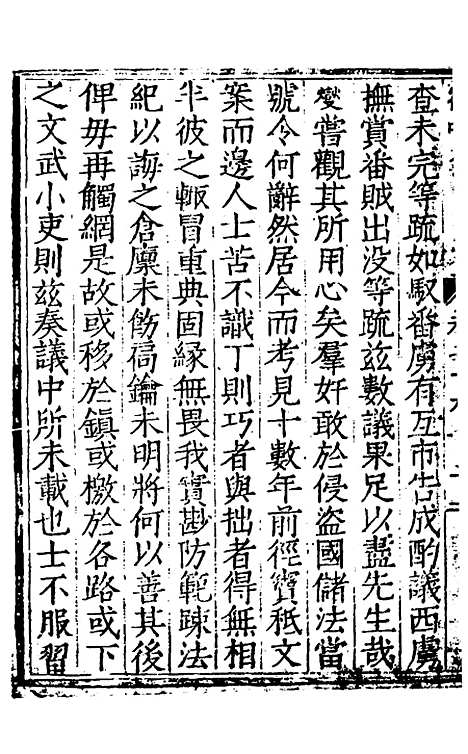 查未完等疏如馭番虜有互市告成酌議西虜
撫賞番賊出没等疏兹數議果足以盡先生哉
變嘗觀其所用心矣羣奸敢於侵盗國儲法當
號令何辭然居今而考見十數年前徑竇秖文
案而邊人士苦不識丁則巧者與拙者得無相
半彼之輙冐重典固緣無畏我實尠防範踈法
紀以誨之倉廪未飭扃鑰未明將何以善其後
俾毋再觸網是故或移於鎮或檄於各路或下
之文武小吏則兹奏議中所未載也士不服習